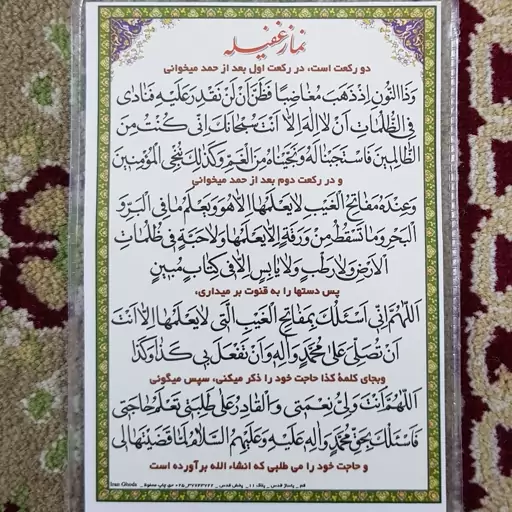 نماز غفیله
دو رکعت است، در رکعت اول بعد از حمد میخوانی
وَذَا النُّونِ اِذْ ذَهَبَ مُغاضِبًا فَظَنَّ اَنْ لَنْ نَقْدِرَ عَلَیْهِ فَنادی
فِی الظُّلُماتِ اَنْ لا اِلهَ اِلاّ اَنْتَ سُبْحانَكَ اِنّی كُنْتُ مِنَ
الظّالِمینَ فَاسْتَجَبْنا لَهُ وَنَجَّیْناهُ مِنَ الْغَمِّ وَكَذلِكَ نُنْجِی الْمُؤْمِنینَ
و در رکعت دوم بعد از حمد میخوانی
وَعِنْدَهُ مَفاتِحُ الْغَیْبِ لا یَعْلَمُها اِلاّ هُوَ وَیَعْلَمُ ما فِی الْبَرِّ وَ
الْبَحْرِ وَما تَسْقُطُ مِنْ وَرَقَةٍ اِلاّ یَعْلَمُها وَلا حَبَّةٍ فی ظُلُماتِ
الْاَرْضِ وَلا رَطْبٍ وَلا یابِسٍ اِلاّ فی كِتابٍ مُبینٍ
پس دستها را به قنوت بر میداری،
اَللّهُمَّ اِنّی اَسْئَلُكَ بِمَفاتِحِ الْغَیْبِ الَّتی لا یَعْلَمُها اِلاّ اَنْتَ
اَنْ تُصَلِّیَ عَلی مُحَمَّدٍ وَآلِهِ وَاَنْ تَفْعَلَ بی كَذا وَكَذا
وبجای کلمهٔ کذا حاجت خود را ذکر میکنی، سپس میگونی
اَللّهُمَّ اَنْتَ وَلِیُّ نِعْمَتی وَالْقادِرُ عَلی طَلِبَتی تَعْلَمُ حاجَتی
فَاَسْئَلُكَ بِحَقِّ مُحَمَّدٍ وَآلِهِ عَلَیْهِ وَعَلَیْهِمُ السَّلامُ لَمّا قَضَیْتَها لی
و حاجت خود را می طلبی که انشاء الله برآورده است
قم _ پاساژ قدس _ پلاک ۱۱_ پخش قدس _ ۰۲۵_۳۷۷۴۳۷۲۲ حق چاپ محفوظ _ Iran Ghods